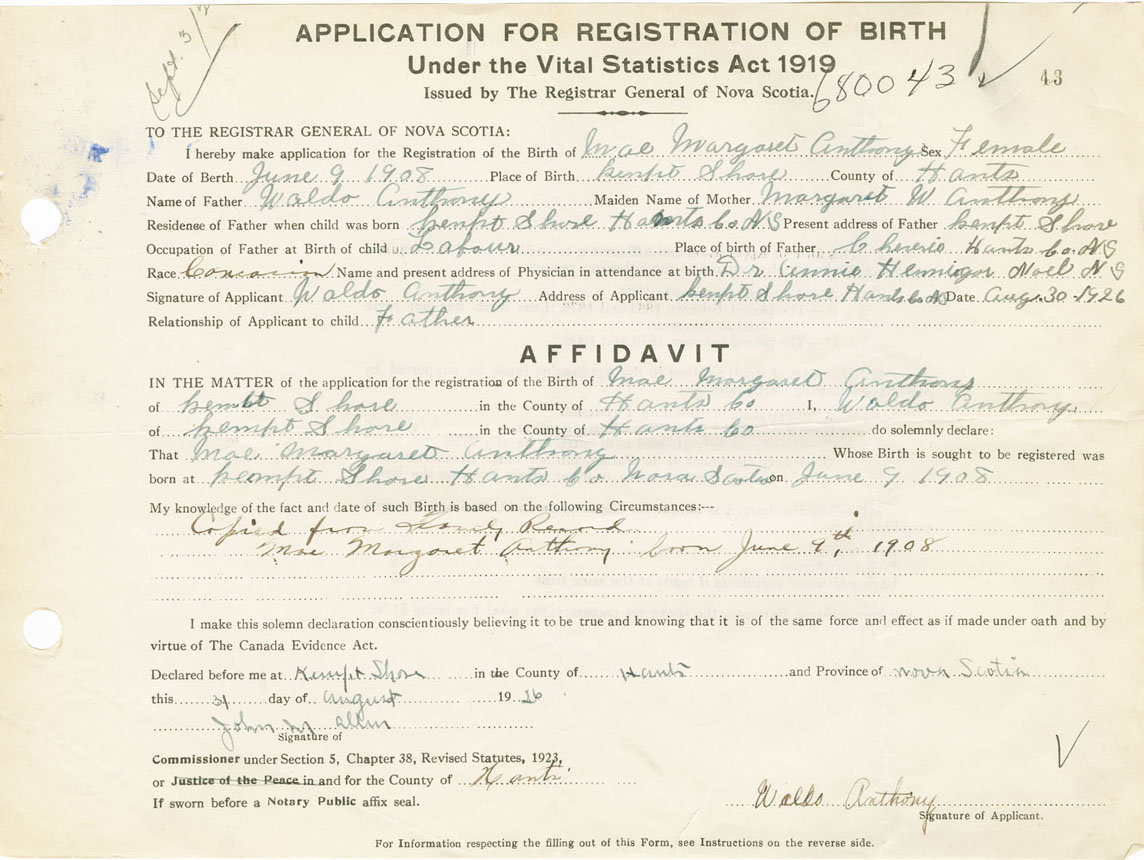 Sept. 3/
APPLICATION FOR REGISTRATION OF BIRTH
Under the Vital Statistics Act 1919
680043
43
Issued by The Registrar General of Nova Scotia.
TO THE REGISTRAR GENERAL OF NOVA SCOTIA:
I hereby make application for the Registration of the Birth of Mae Margaret Anthony Sex Female
Date of Berth June 9 1908 Place of Birth kempt Shore County of Hants
Name of Father Waldo Anthony Maiden Name of Mother Margaret W Anthony
Residense of Father when child was born kempt Shore Hants Co N S Present address of Father kempt Shore
Occupation of Father at Birth of child Labour Place of birth of Father Cheverie Hants Co. N S
Race Name and present address of Physician in attendance at birth Dr Annie Hennigar Noel N S
Signature of Applicant Waldo Anthony Address of Applicant kempt Shore Hants Co N S Date Aug. 30 - 1926
Relationship of Applicant to child Father
AFFIDAVIT
IN THE MATTER of the application for the registration of the Birth of Mae Margaret Anthony
of kempt Shore in the County of Hants Co I, Waldo Anthony
of kempt Shore in the County of Hants Co do solemnly declare:
That Mae Margaret Anthony Whose Birth is sought to be registered was
born at kempt Shore Hants Co Nova Scotia on June 9 1908
My knowledge of the fact and date of such Birth is based on the following Circumstances:---
Copied from Family Record
Mae Margaret Anthony born June 9th, 1908
I make this solemn declaration conscientiously believing it to be true and knowing that it is of the same force and effect as if made under oath and by
virtue of The Canada Evidence Act.
Declared before me at Kempt Shore in the County of Hants and Province of Nova Scotia
this 31 day of August 1926
John W Allen
Signature of
Commissioner under Section 5, Chapter 38, Revised Statutes, 1923,
or Justice of the Peace in and for the County of Hants
If sworn before a Notary Public affix seal.
Waldo Anthony
Signature of Applicant.
For Information respecting the filling out of this Form, see Instructions on the reverse side.